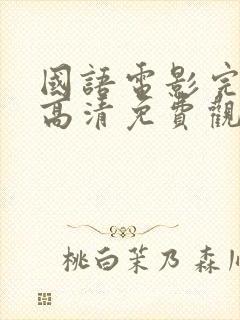 國語電影完
高清免費觀
桃白茉乃 森川